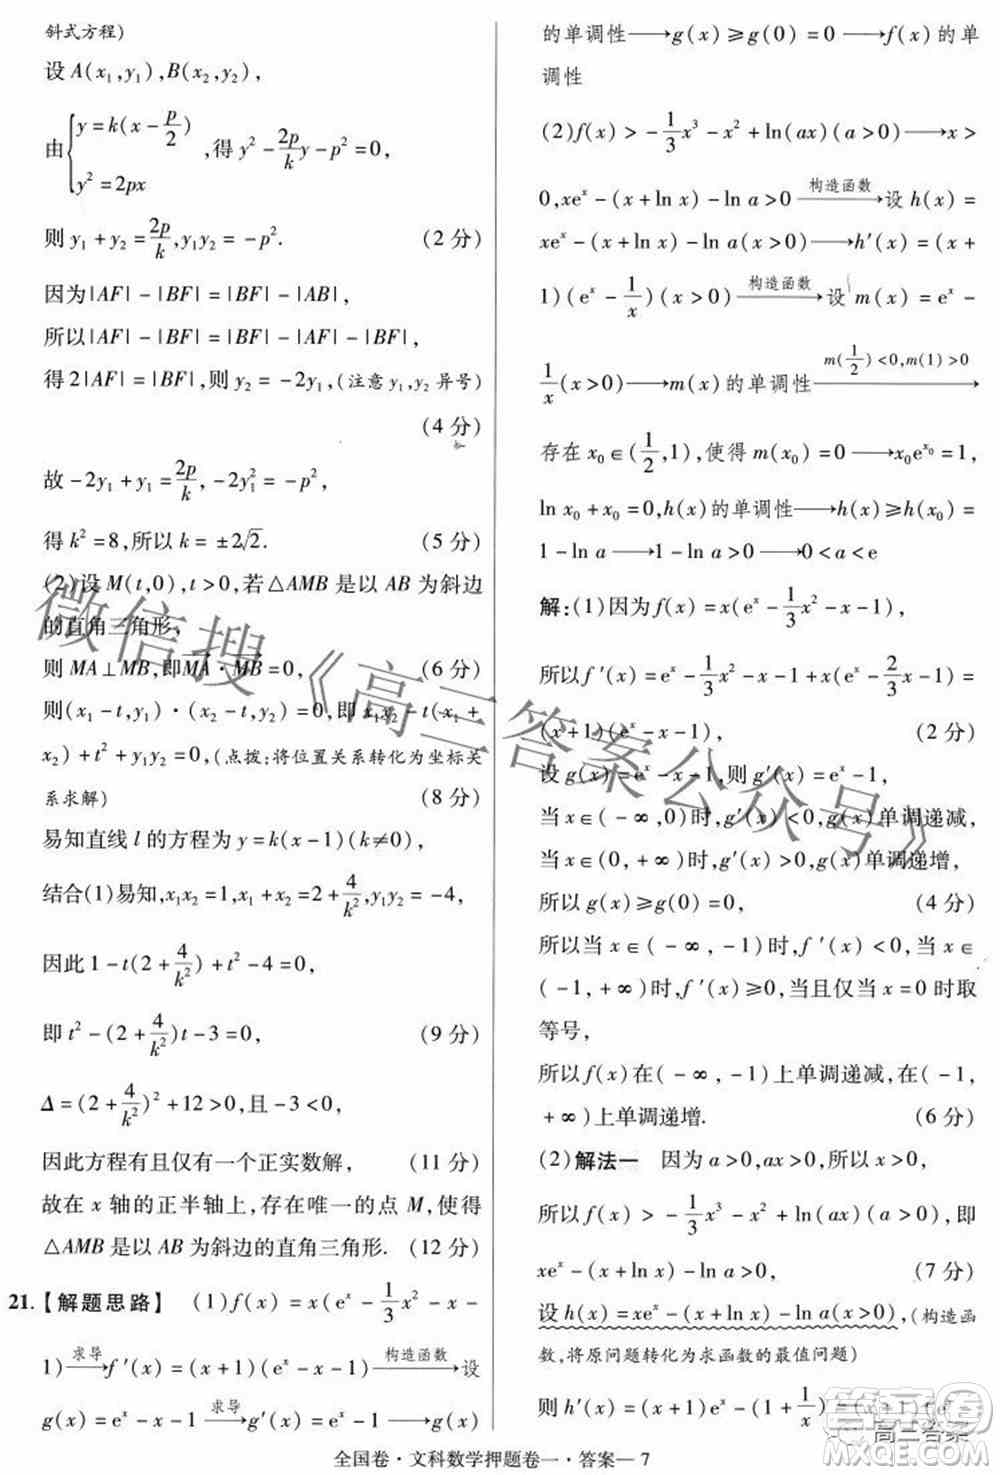 斜式方程)
设 A(x₁,y₁),B(x₂,y₂),
由{y=k(x-p/2) y²=2px ,得 y²-2p/k y-p²=0,
则 y₁+y₂=2p/k,y₁y₂=-p². (2分)
因为|AF|-|BF|=|BF|-|AB|,
所以|AF|-|BF|=|BF|-|AF|-|BF|,
得 2|AF|=|BF|,则 y₂=-2y₁,(注意 y₁,y₂ 异号)
(4分)
故-2y₁+y₁=2p/k,-2y₁²=-p²,
得 k²=8,所以 k=±2√2. (5分)
(2)设 M(t,0),t>0,若△AMB 是以 AB 为斜边
的直角三角形,
则 MA⊥MB,即MA·MB=0, (6分)
则(x₁-t,y₁)·(x₂-t,y₂)=0,即 x₁x₂-t(x₁+
x₂)+t²+y₁y₂=0,(点拨:将位置关系转化为坐标关
系求解) (8分)
易知直线 l 的方程为 y=k(x-1)(k≠0),
结合(1)易知,x₁x₂=1,x₁+x₂=2+4/k²,y₁y₂=-4,
因此 1-t(2+4/k²)+t²-4=0,
即 t²-(2+4/k²)t-3=0, (9分)
Δ=(2+4/k²)²+12>0,且-3<0,
因此方程有且仅有一个正实数解, (11分)
故在 x 轴的正半轴上,存在唯一的点 M,使得
△AMB 是以 AB 为斜边的直角三角形. (12分)
21.【解题思路】 (1)f(x)=x(eˣ-1/3x²-x-
1)求导⟶f′(x)=(x+1)(eˣ-x-1)构造函数⟶设
g(x)=eˣ-x-1求导⟶g′(x)=eˣ-1⟶g(x)
的单调性⟶g(x)≥g(0)=0⟶f(x)的单
调性
(2)f(x)>-1/3x³-x²+ln(ax)(a>0)⟶x>
0,xeˣ-(x+ln x)-ln a>0构造函数⟶设 h(x)=
xeˣ-(x+ln x)-ln a(x>0)⟶h′(x)=(x+
1)(eˣ-1/x)(x>0)构造函数⟶设 m(x)=eˣ-
1/x(x>0)⟶m(x)的单调性m(1/2)<0,m(1)>0⟶
存在 x₀∈(1/2,1),使得 m(x₀)=0⟶x₀eˣ⁰=1,
ln x₀+x₀=0,h(x)的单调性⟶h(x)≥h(x₀)=
1-ln a⟶1-ln a>0⟶0<a<e
解:(1)因为 f(x)=x(eˣ-1/3x²-x-1),
所以 f′(x)=eˣ-1/3x²-x-1+x(eˣ-2/3x-1)=
(x+1)(eˣ-x-1), (2分)
设 g(x)=eˣ-x-1,则 g′(x)=eˣ-1,
当 x∈(-∞,0)时,g′(x)<0,g(x)单调递减,
当 x∈(0,+∞)时,g′(x)>0,g(x)单调递增,
所以 g(x)≥g(0)=0, (4分)
所以当 x∈(-∞,-1)时,f′(x)<0,当 x∈
(-1,+∞)时,f′(x)≥0,当且仅当 x=0 时取
等号,
所以 f(x)在(-∞,-1)上单调递减,在(-1,
+∞)上单调递增. (6分)
(2)解法一 因为 a>0,ax>0,所以 x>0,
所以 f(x)>-1/3x³-x²+ln(ax)(a>0),即
xeˣ-(x+ln x)-ln a>0, (7分)
设 h(x)=xeˣ-(x+ln x)-ln a(x>0),(构造函
数,将原问题转化为求函数的最值问题)
则 h′(x)=(x+1)eˣ-(1+1/x)=(x+1)(eˣ
全国卷·文科数学押题卷一·答案—7
微信搜《高三答案公众号》
答案圈
高三答案